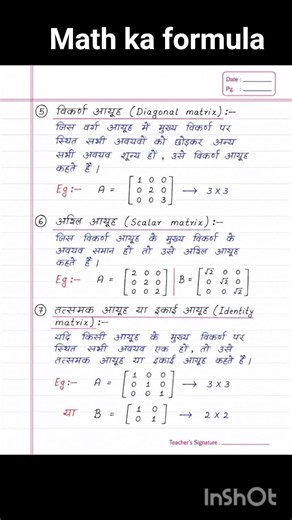 Math ka formula
Date :
Pg. :
⑤ विकर्ण आव्यूह (Diagonal matrix) :-
जिस वर्ग आव्यूह में मुख्य विकर्ण पर
स्थित सभी अवयवों को छोड़कर अन्य
सभी अवयव शून्य हों, उसे विकर्ण आव्यूह
कहते हैं।
Eg:- A = [1 0 0
0 2 0
0 0 3] → 3 x 3
⑥ अदिश आव्यूह (Scalar matrix) :-
जिस विकर्ण आव्यूह के मुख्य विकर्ण के
अवयव समान हों तो उसे अदिश आव्यूह
कहते हैं।
Eg:- A = [2 0 0 | B = [√2 0 0
0 2 0 | 0 √2 0
0 0 2] | 0 0 √2]
⑦ तत्समक आव्यूह या इकाई आव्यूह (Identity
matrix) :-
यदि किसी आव्यूह के मुख्य विकर्ण पर
स्थित सभी अवयव एक हों, तो उसे
तत्समक आव्यूह या इकाई आव्यूह कहते हैं।
Eg:- A = [1 0 0
0 1 0
0 0 1] → 3 x 3
या B = [1 0
0 1] → 2 x 2
Teacher's Signature :
InShOt